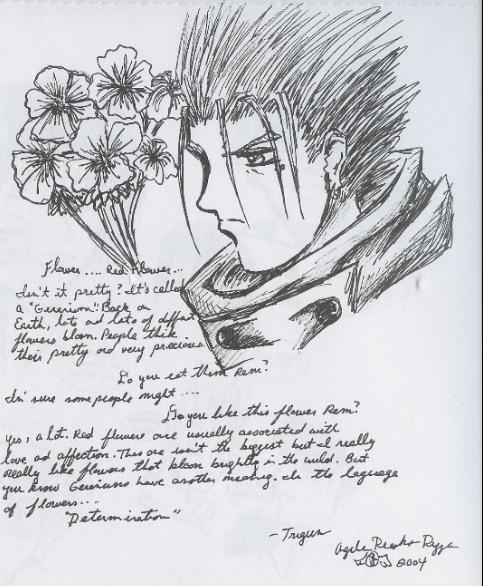 Flower .... Red Flower...
Isn't it pretty? It's called
a "Gerenium". Back on
Earth, lots and lots of diffrent
flowers bloom. People think
their pretty and very precious.
Do you eat them Rem?
I'm sure some people might ....
Do you like this flower Rem?
Yes, a lot. Red flowers are usually associated with
love and affection. This one isn't the biggest but I really
really like flowers that bloom brightly in the wild. But
you know Gereniums have another meaning. In the laguage
of flowers...
"Determination"
- Trigun
2004